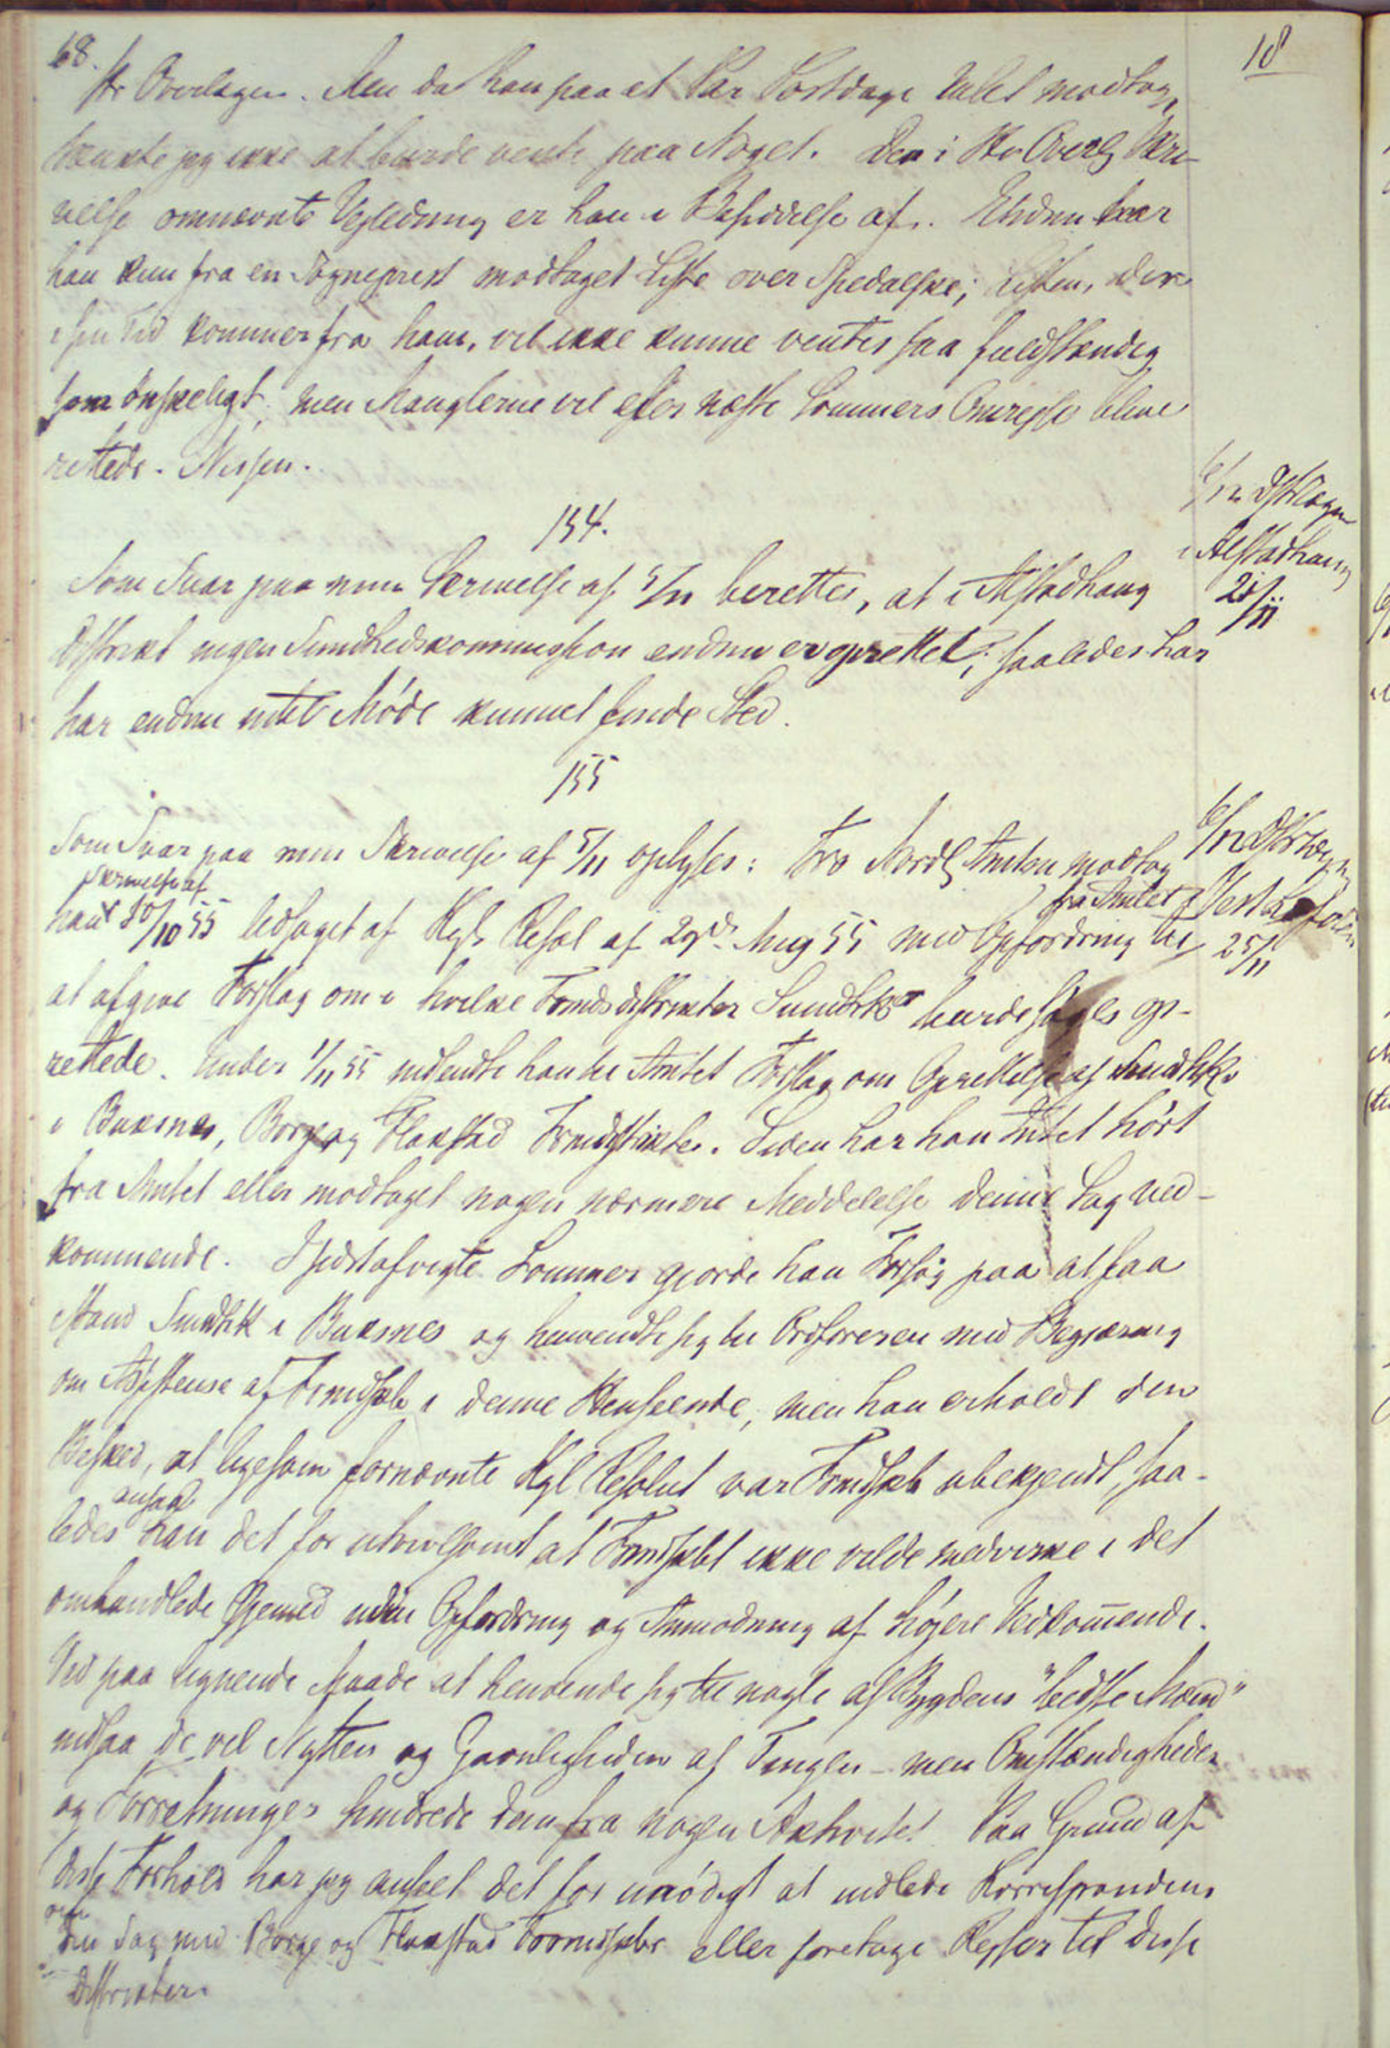 68.
18
Hr Overlægen. Men da han paa et Par Postdage Intet modtog,
tænkte jeg ikke at burde vente paa Noget. Den i Hr Overlg Skri-
velse omnævnte Vejledning er han i Besiddelse af. Endnu har
han kun fra en Sogneprest modtaget Liste over Spedalske; Listen, der
i sin Tid kommer fra ham, vil ikke kunne ventes saa fuldstændig
som ønskeligt, men Manglerne vil efter næste Sommers Omrejse blive
rettede. Nissen.
6/12 Distlægen
i Alstadhaug
20/11
154.
Som Svar paa min Skrivelse af 5/11 berettes, at i Alstadhaug
Distrikt ingen Sundhedskommission endnu er oprettet; saaledes har
har endnu intet Møde kunnet finde Sted.
155
6/12 Distrlægen
Vest Lofoten
25/11
Som Svar paa min Skrivelse af 5/11 oplyses: Fra Nordl Amten modtog
Skrivelse af
fra Amtet
han 10/10 55 ledsaget af Kgl. Resol af 29de Aug 55 med Opfordring til
at afgive Forslag om i hvilke Formdsdistrikter Sundhk burde søges op-
rettede. Under 1/11 55 indsendte han til Amtet Forslag om Oprettelse af Sundhk
i Buksnes, Borge og Flakstad Formdistrikter. Siden har han Intet hört
fra Amtet eller modtaget nogen nærmere Meddelelse denne Sag ved-
kommende. I sidstafvigte Sommer gjorde han Forsøg paa at faa
istand Sundhk i Buksnes og henvendte sig til Ordføreren med Begjæring
om Assistense af Formdskb i denne Henseende, men han erholdt den
Besked, at ligesom fornævnte Kgl Resolut var Formdskb ubekjendt, saa-
ansaa
ledes han det for utvivlsomt at Formdskbt ikke vilde medvirke i det
omhandlede Øjemed uden Opfordring og Anmodning af højere Vedkommende.
Ved paa lignende Maade at henvende sig til nogle af Bygdens "bedste Mænd"
indsaa de vel Nytten og Gavnligheden af Tingen - men Omstændigheder
og Forretninger hindrede dem fra nogen Aktivitet. Paa Grund af
disse Forhold har jeg anseet det for unödigt at indlede Korrespondens
om
den Sag med Borge og Flakstad Formdskber eller foretage Rejser til disse
Distrikter.